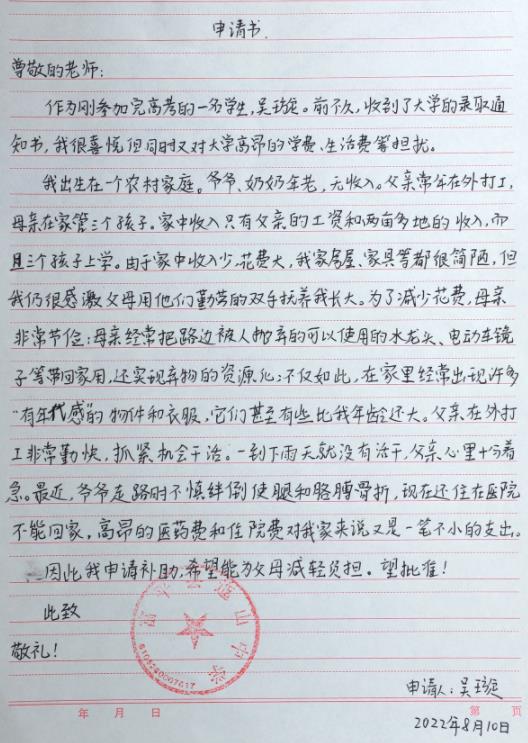 申请书
尊敬的老师:
作为刚参加完高考的一名学生,吴琂。前不久,收到了大学的录取通
知书,我很喜悦但同时又对大学高昂的学费、生活费等担扰。
我出生在一个农村家庭。爷爷、奶奶年老,无收入。父亲常年在外打工,
母亲在家管三个孩子。家中收入只有父亲的工资和两亩多地的收入,而
且三个孩子上学。由于家中收入少,花费大,我家房屋、家具等都很简陋,但
我仍很感激父母用他们勤劳的双手扶养我长大。为了减少花费,母亲
非常节俭;母亲经常把路边被人抛弃的可以使用的水龙头、电动车镜
子等带回家用,还实现弃物的资源化;不仅如此,在家里经常出现许多
“有年代感”的物件和衣服,它们甚至有些比我年龄还大。父亲在外打
工非常勤快,抓紧机会干活。一到下雨天就没有活干,父亲心里十分着
急。最近,爷爷走路时不慎绊倒使腿和胳膊骨折,现在还住在医院
不能回家,高昂的医药费和住院费对我家来说又是一笔不小的支出。
因此我申请补助,希望能为父母减轻负担。望批准!
此致
敬礼!
富平县迤山中学
6105280007617
申请人:吴
年 月 日
第 页
2022年8月10日